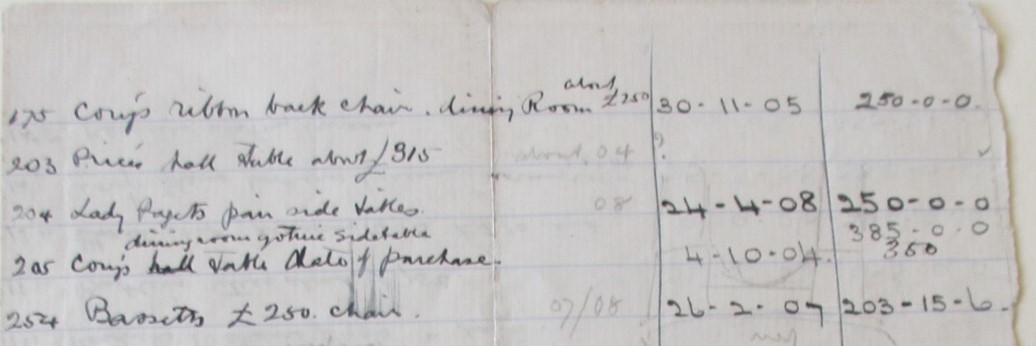 about
175 Cony's ribbon back chair. dining Room £250 30-11-05 250-0-0.
203 Price's hall table about £315 about 04 ?
204 Lady Pagets pair side tables. 08 24-4-08 250-0-0
dining room gothic sidetable 385-0-0
205 Cony's hall table Date of purchase. 4-10-04. 350
254 Bassetts £250. chair. 07/08 26-2-07 203-15-6.